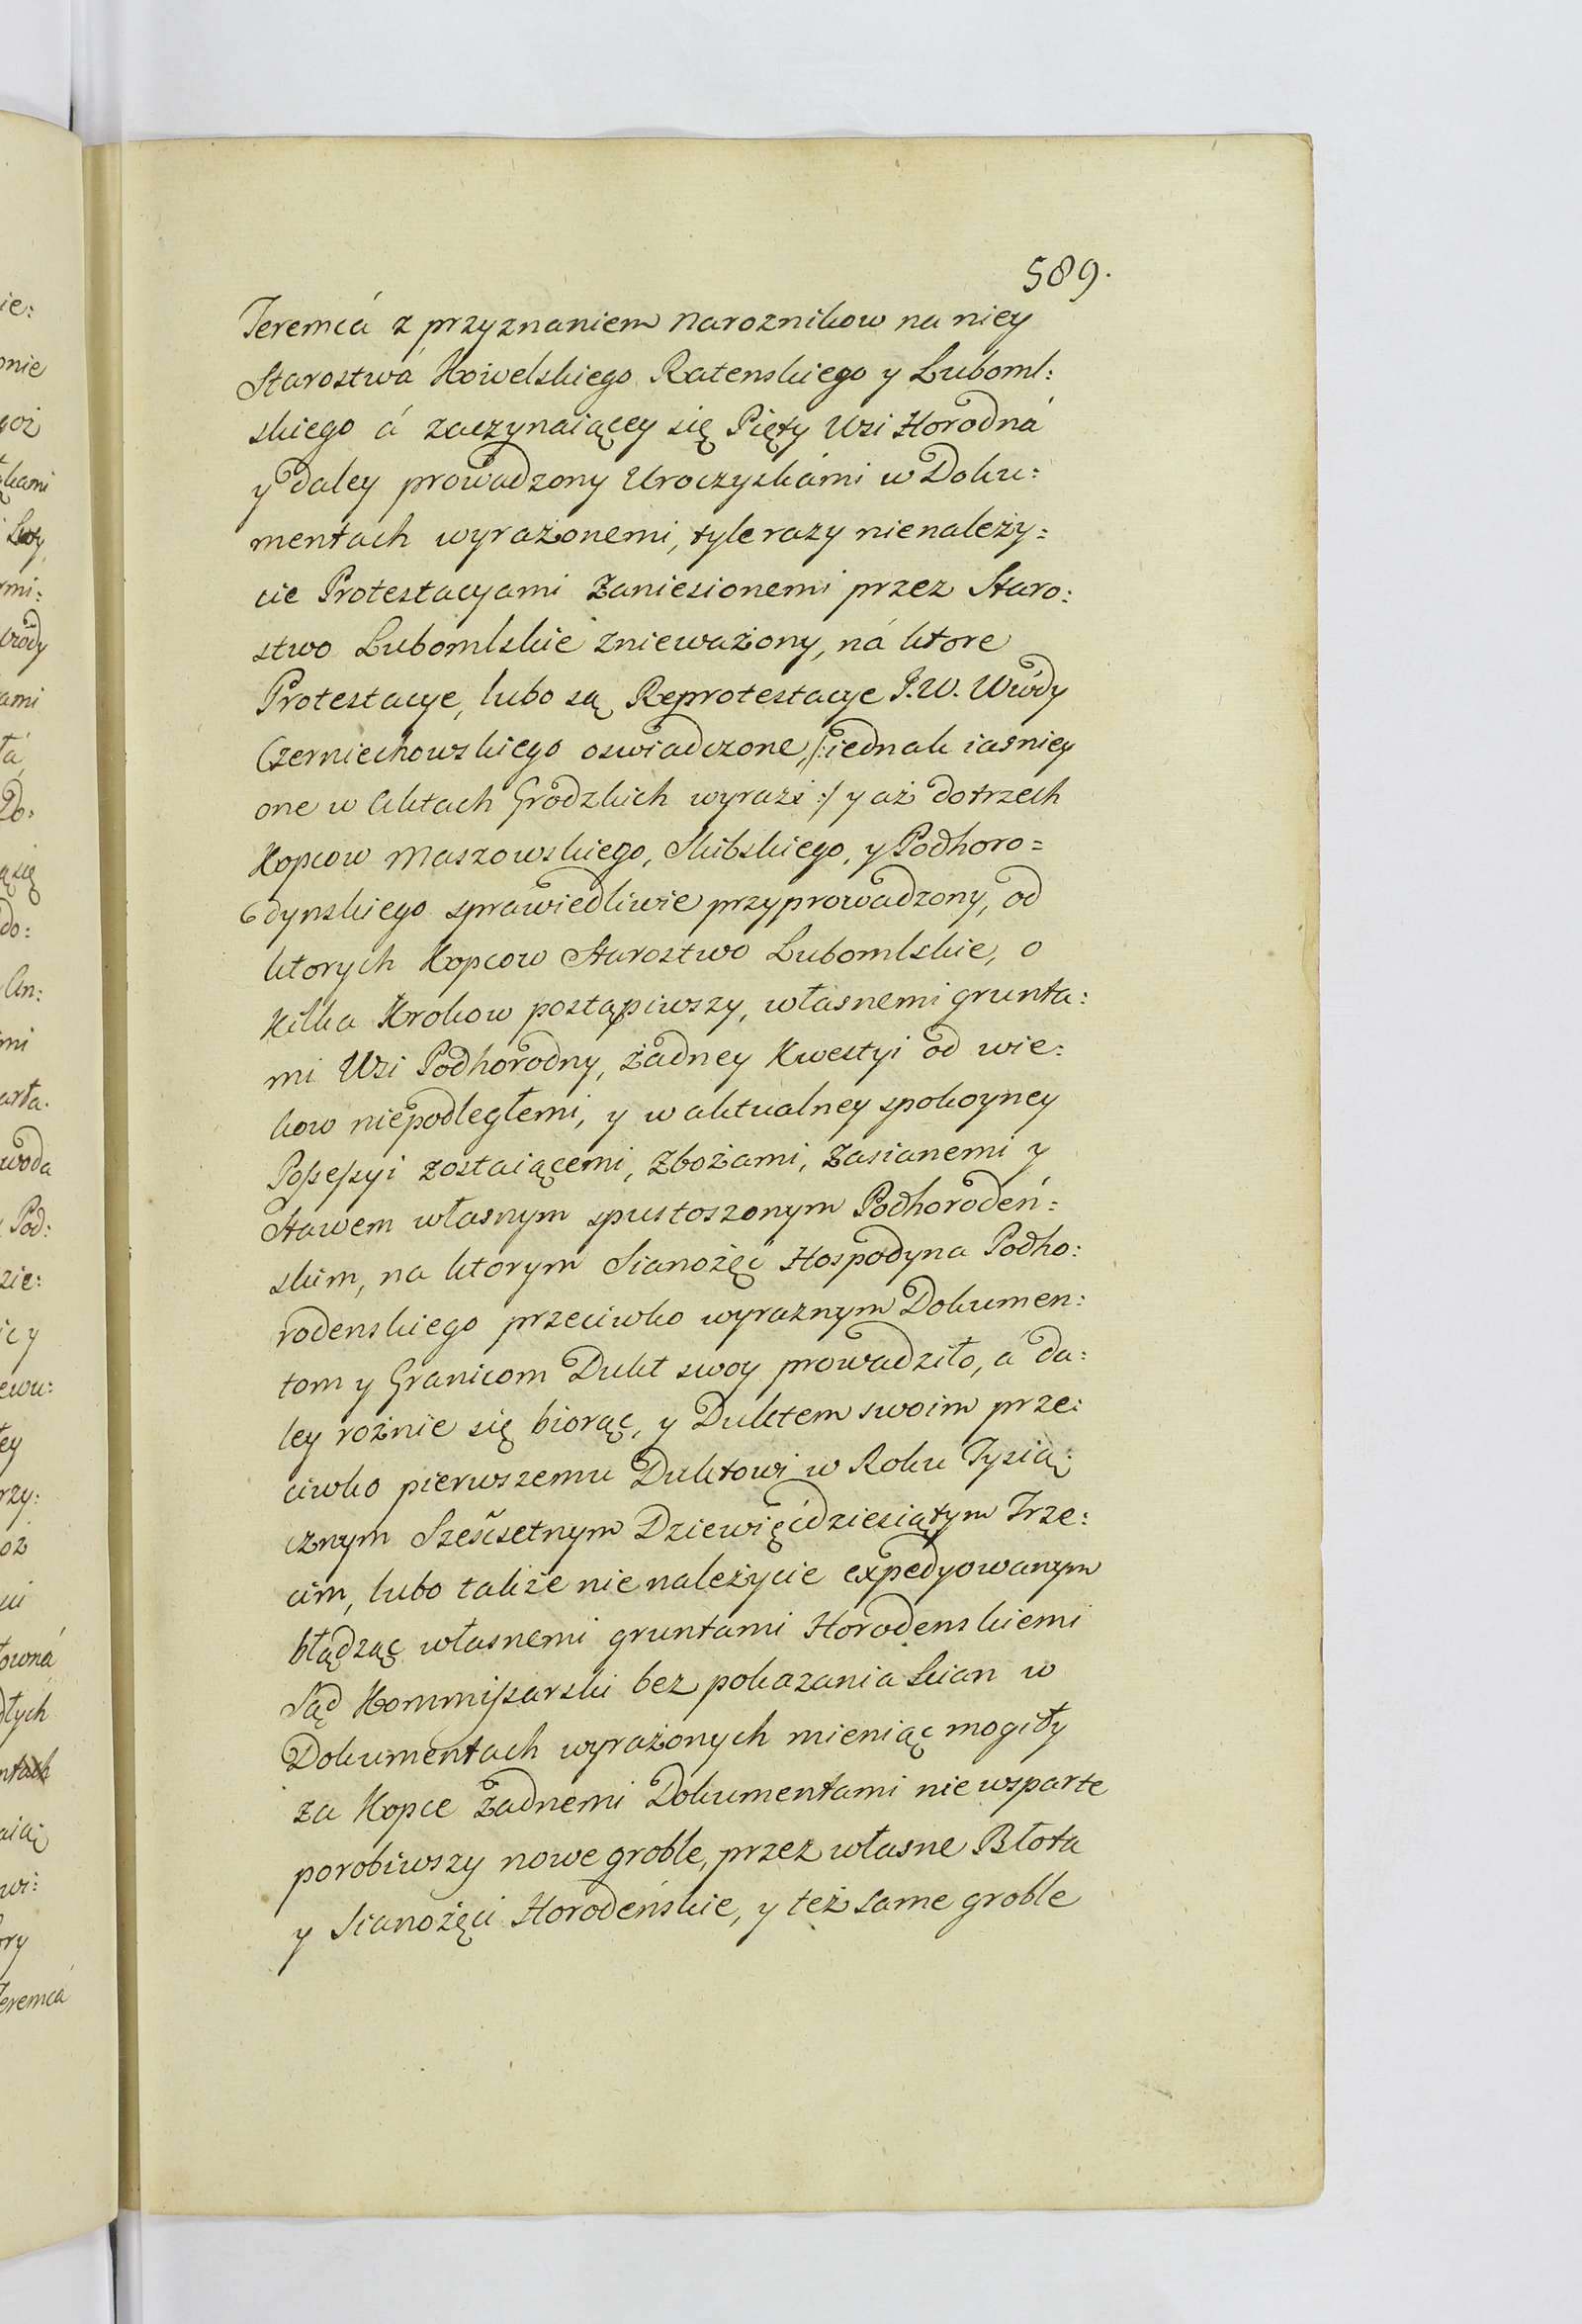 589.
Jeremcá z przyznaniem Naroznikow na niey
Starostwá Kowelskiego Ratenskiego y Luboml:
skiego á zaczynaiącey się Pięty Wsi Horodná
y daley prowadzony Uroczyskámi w Doku:
mentach wyrażonemi, tyle razy nienależy:
cie Protestacyami Zaniesionemi przez Staro:
stwo Lubomlskie znieważony, ná ktore
Protestacye, lubo są Reprotestacye J.W. Wwódy
Czerniechowskiego oswiadczone, /:iednak iasniey
one w Aktach Grodzkich wyrazi :/ y aż do trzech
Kopcow Maszowskiego, Skibskiego, y Podhoro=
dynskiego sprawiedliwie przyprowadzony, od
ktorych Kopcow Starostwo Lubomlskie, o
Kilka Krokow postąpiwszy, własnemi grunta:
mi Wsi Podhorodny, żadney Kwestyi od wie:
kow niepodległemi, y w aktualney spokoyney
Possessyi zostaiącemi, Zbożami, Zasianemi y
Stawem własnym spustoszonym Podhorodeń:
skim, na ktorym Sianożęć Hospodyna Podho:
rodenskiego przeciwko wyraznym Dokumen:
tom y Granicom Dukt swoy prowadziło, á da:
ley rożnie się biorąc, y Duktem swoim prze:
ciwko pierwszemu Duktowi w Roku Tysią:
cznym Sześćsetnym Dziewięćdziesiątym Trze:
cim, lubo także nie należycie expedyowanym
błądząc własnemi gruntami Horodenskiemi
Sąd Kommissarski bez pokazania Scian w
Dokumentach wyrażonych mieniąc mogiły
za Kopce żadnemi Dokumentami nie wsparte
porobiwszy nowe groble, przez własne Błota
y Sianożęci Horodeńskie, y też same groble